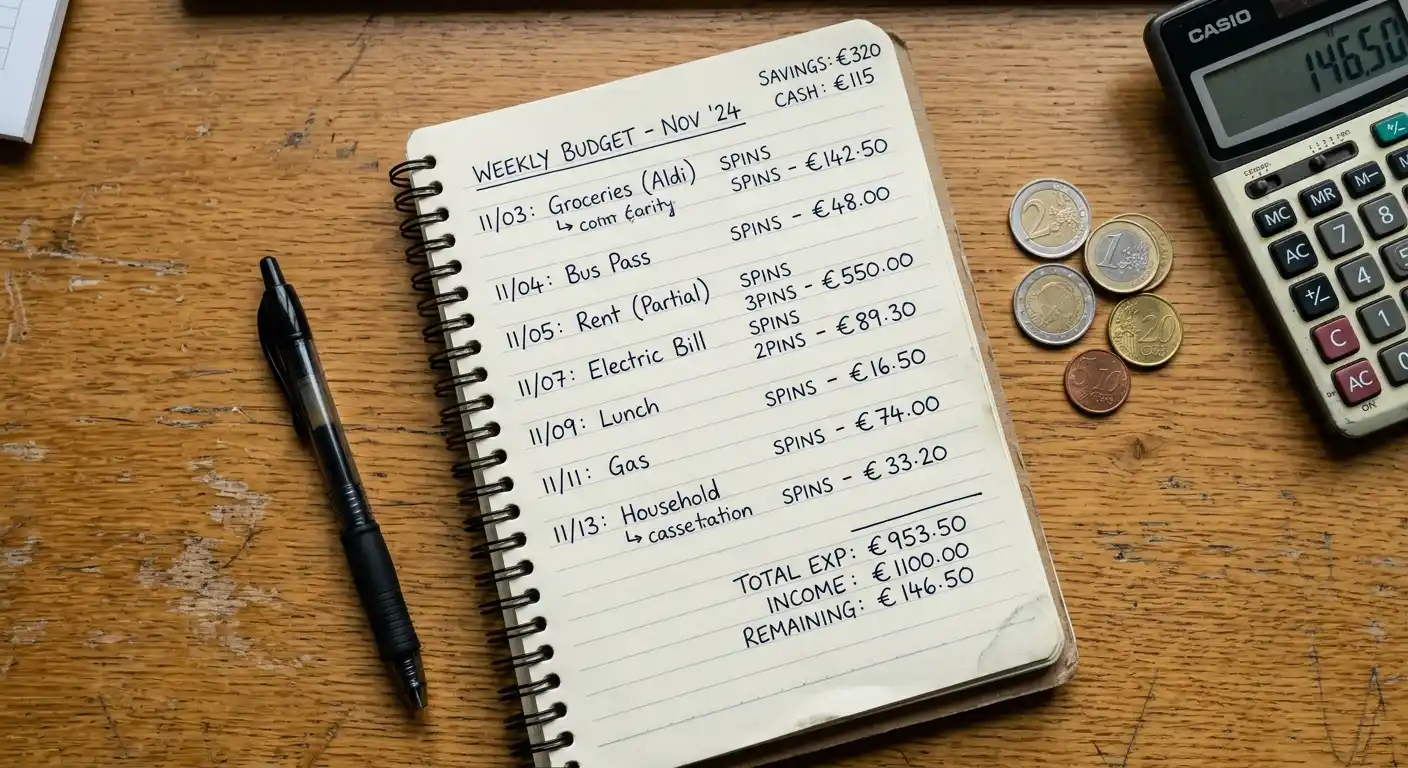 SAVINGS: €320
CASH: €115
WEEKLY BUDGET - NOV '24
11/03: Groceries (Aldi) SPINS
SPINS - €142.50
↳ com
11/04: Bus Pass SPINS - €48.00
11/05: Rent (Partial) SPINS
3PINS - €550.00
11/07: Electric Bill SPINS
2PINS - €89.30
11/09: Lunch SPINS - €16.50
11/11: Gas SPINS - €74.00
11/13: Household SPINS - €33.20
↳ cassetation
TOTAL EXP: €953.50
INCOME: €1100.00
REMAINING: €146.50
CASIO
146.50
MC MR M-
AC 7 8
+/- 4 5
C 1
AC 0
ON
2
1
20